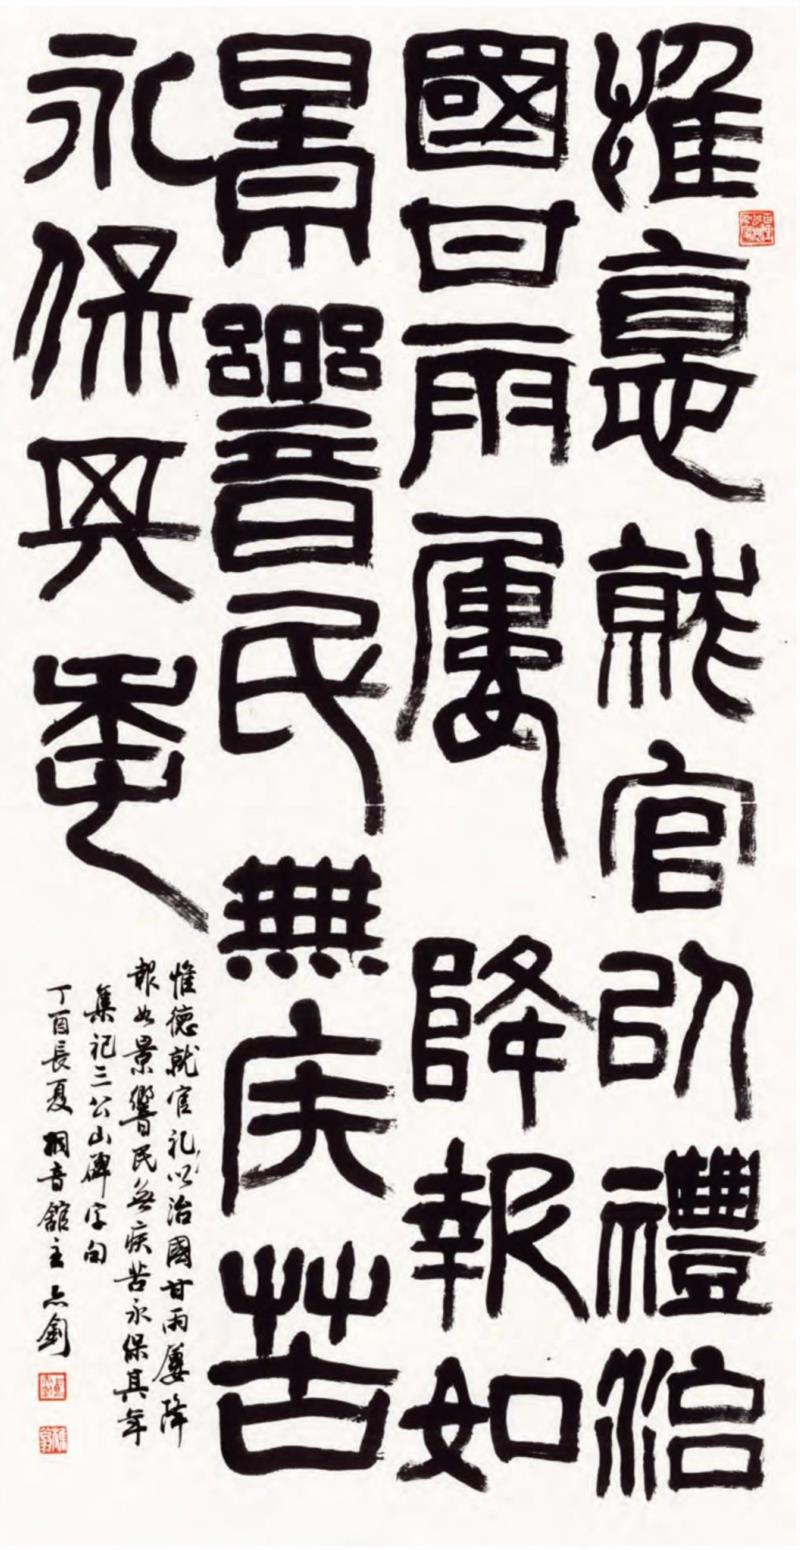 惟惪就官㠯禮治
國甘雨屢降報如
景響民無疾苦
永保其秊
惟德就官礼以治國甘雨屢降
報如景響民無疾苦永保其年
集祀三公山碑字句
丁酉長夏 桐音館主